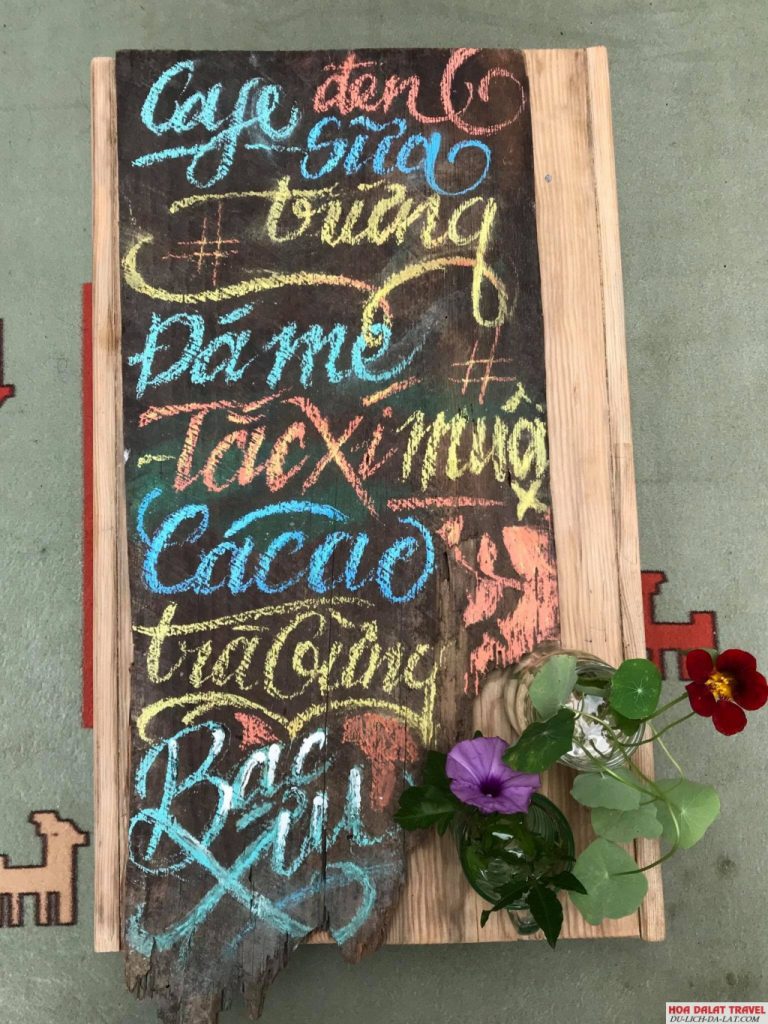 Cafe đen
sữa
# trứng
Đá me #
Tắc xí muội
Cacao
trà Gừng
Bạc
xỉu
HOA DALAT TRAVEL
DU-LICH-DA-LAT.COM